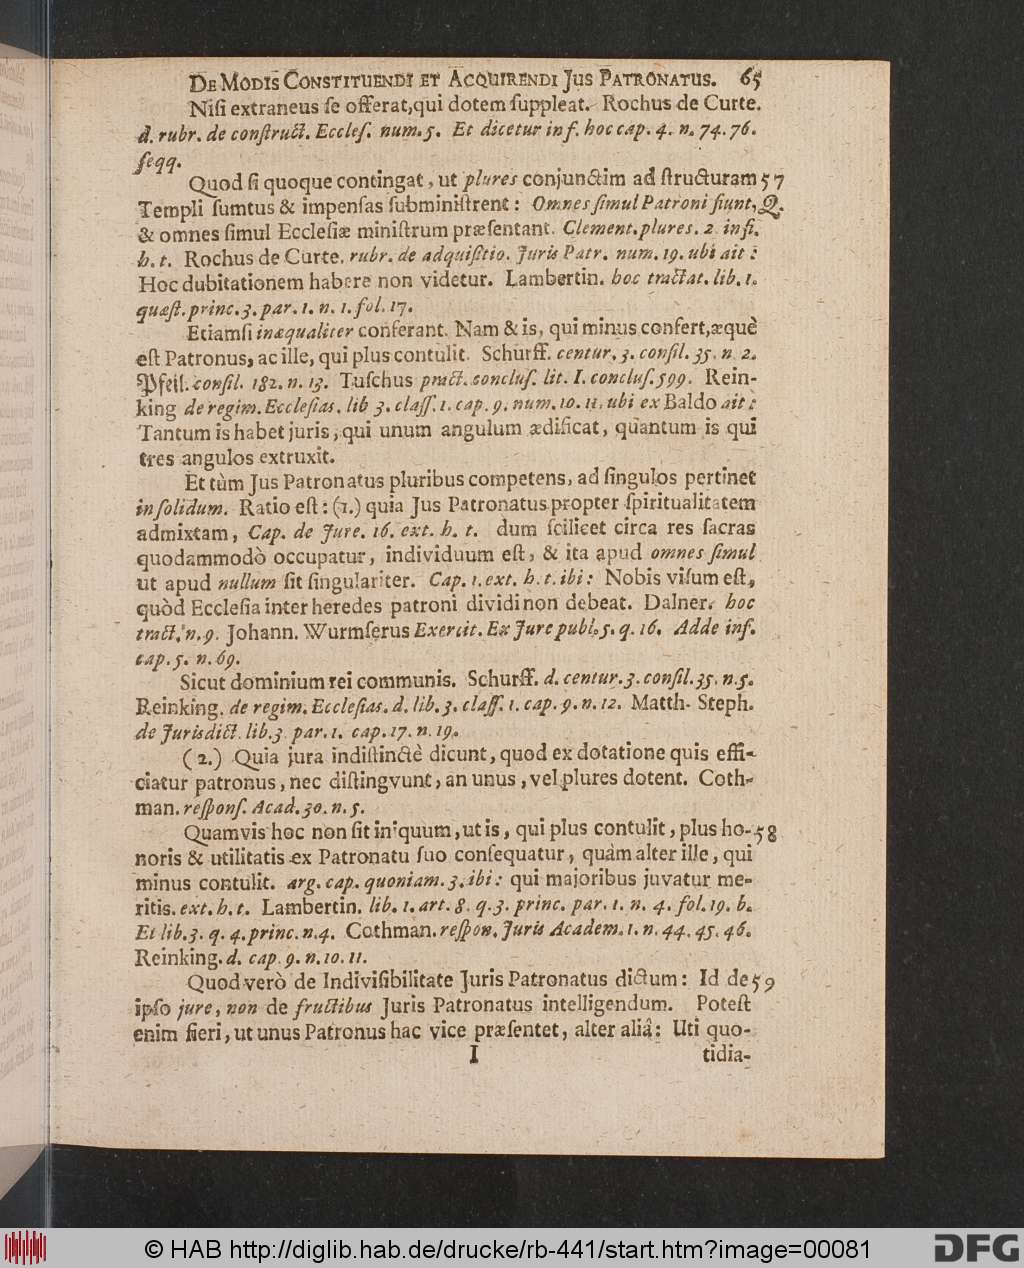 De Modis Constituendi et Acquirendi Jus Patronatus. 65
Niſi extraneus ſe offerat, qui dotem ſuppleat. Rochus de Curte.
d. rubr. de conſtruct. Eccleſ. num. 5. Et dicetur inf. hoc cap. 4. n. 74. 76.
ſeqq.
Quod ſi quoque contingat, ut plures conjunctim ad ſtructuram 57
Templi ſumtus & impenſas ſubminiſtrent: Omnes ſimul Patroni fiunt, Q.
& omnes ſimul Eccleſiæ miniſtrum præſentant. Clement. plures. 2. infi.
h. t. Rochus de Curte. rubr. de adquiſitio. Juris Patr. num. 19. ubi ait:
Hoc dubitationem habere non videtur. Lambertin. hoc tractat. lib. 1.
quæſt. princ. 3. par. 1. n. 1. fol. 17.
Etiamſi inæqualiter conferant. Nam & is, qui minus confert, æquè
eſt Patronus, ac ille, qui plus contulit. Schurff. centur. 3. conſil. 35. n. 2.
Pfeil. conſil. 182. n. 13. Tuſchus pract. concluſ. lit. I. concluſ. 599. Rein-
king de regim. Eccleſias. lib 3. claſſ. 1. cap. 9. num. 10. 11. ubi ex Baldo ait:
Tantum is habet juris, qui unum angulum ædificat, quantum is qui
tres angulos extruxit.
Et tùm Jus Patronatus pluribus competens, ad ſingulos pertinet
in ſolidum. Ratio eſt: (1.) quia Jus Patronatus propter ſpiritualitatem
admixtam, Cap. de Jure. 16. ext. h. t. dum ſcilicet circa res ſacras
quodammodò occupatur, individuum eſt, & ita apud omnes ſimul
ut apud nullum ſit ſingulariter. Cap. 1. ext. h. t. ibi: Nobis viſum eſt,
quòd Eccleſia inter heredes patroni dividi non debeat. Dalner. hoc
tract. n. 9. Johann. Wurmſerus Exercit. Ex Jure publ. 5. q. 16. Adde inf.
cap. 5. n. 69.
Sicut dominium rei communis. Schurff. d. centur. 3. conſil. 35. n. 5.
Reinking. de regim. Eccleſias. d. lib. 3. claſſ. 1. cap. 9. n. 12. Matth. Steph.
de Jurisdict. lib. 3 par. 1. cap. 17. n. 19.
(2.) Quia jura indiſtinctè dicunt, quod ex dotatione quis effi-
ciatur patronus, nec diſtingvunt, an unus, vel plures dotent. Coth-
man. reſponſ. Acad. 30. n. 5.
Quamvis hoc non ſit iniquum, ut is, qui plus contulit, plus ho- 58
noris & utilitatis ex Patronatu ſuo conſequatur, quàm alter ille, qui
minus contulit. arg. cap. quoniam. 3. ibi: qui majoribus juvatur me-
ritis. ext. h. t. Lambertin. lib. 1. art. 8. q. 3. princ. par. 1. n. 4. fol. 19. b.
Et lib. 3. q. 4. princ. n. 4. Cothman. reſpon. Juris Academ. 1. n. 44. 45. 46.
Reinking. d. cap. 9. n. 10. 11.
Quod verò de Indiviſibilitate Juris Patronatus dictum: Id de 59
ipſo jure, non de fructibus Juris Patronatus intelligendum. Poteſt
enim fieri, ut unus Patronus hac vice præſentet, alter aliâ: Uti quo-
I tidia-
© HAB http://diglib.hab.de/drucke/rb-441/start.htm?image=00081
DFG